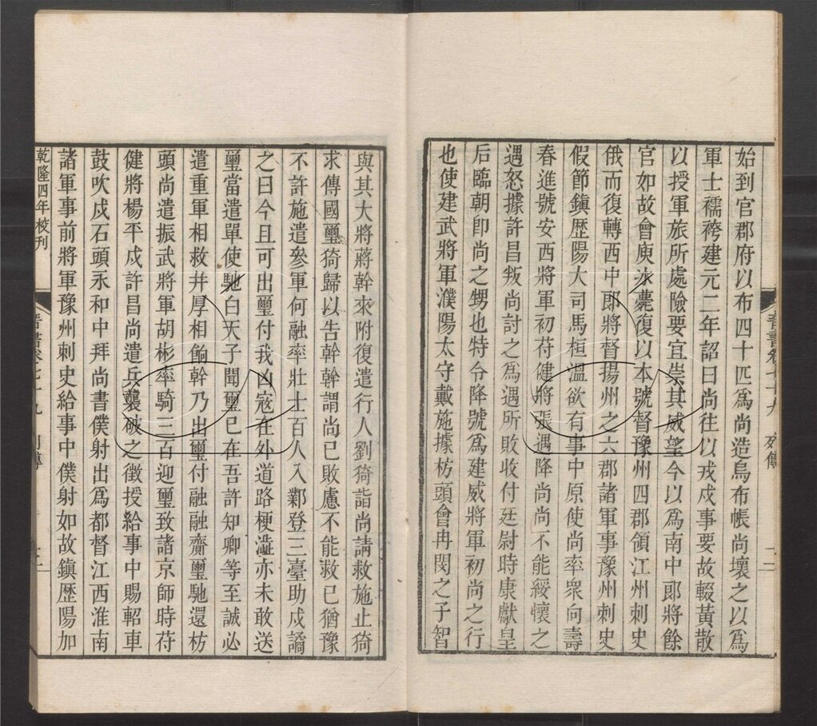 始到官郡府以布四十匹爲尚造烏布帳尚壞之以爲
軍士襦袴建元二年詔曰尚往以戎戍事要故輟黃散
以授軍旅所處險要宜崇其威望今以爲南中郎將餘
官如故會庾冰薨復以本號督豫州四郡領江州刺史
俄而復轉西中郎將督揚州之六郡諸軍事豫州刺史
假節鎭歷陽大司馬桓溫欲有事中原使尚率衆向壽
春進號安西將軍初苻健將張遇降尚尚不能綏懷之
遇怒據許昌叛尚討之爲遇所敗收付廷尉時康獻皇
后臨朝卽尚之甥也特令降號爲建威將軍初尚之行
也使建武將軍濮陽太守戴施據枋頭會冉閔之子智
晉書卷七十九 列傳
與其大將蔣幹來附復遣行人劉猗詣尚請救施止猗
求傳國璽猗歸以告幹幹謂尚已敗慮不能救已猶豫
不許施遣參軍何融率壯士百人入鄴登三臺助戍譎
之曰今且可出璽付我凶寇在外道路梗澁亦未敢送
璽當遣單使馳白天子聞璽已在吾許知卿等至誠必
遣重軍相救幷厚相餉幹乃出璽付融融齎璽馳還枋
頭尚遣振武將軍胡彬率騎三百迎璽致諸京師時苻
健將楊平戍許昌尚遣兵襲破之徵授給事中賜軺車
鼓吹戍石頭永和中拜尚書僕射出爲都督江西淮南
諸軍事前將軍豫州刺史給事中僕射如故鎭歷陽加
乾隆四年校刊
晉書卷七十九 列傳